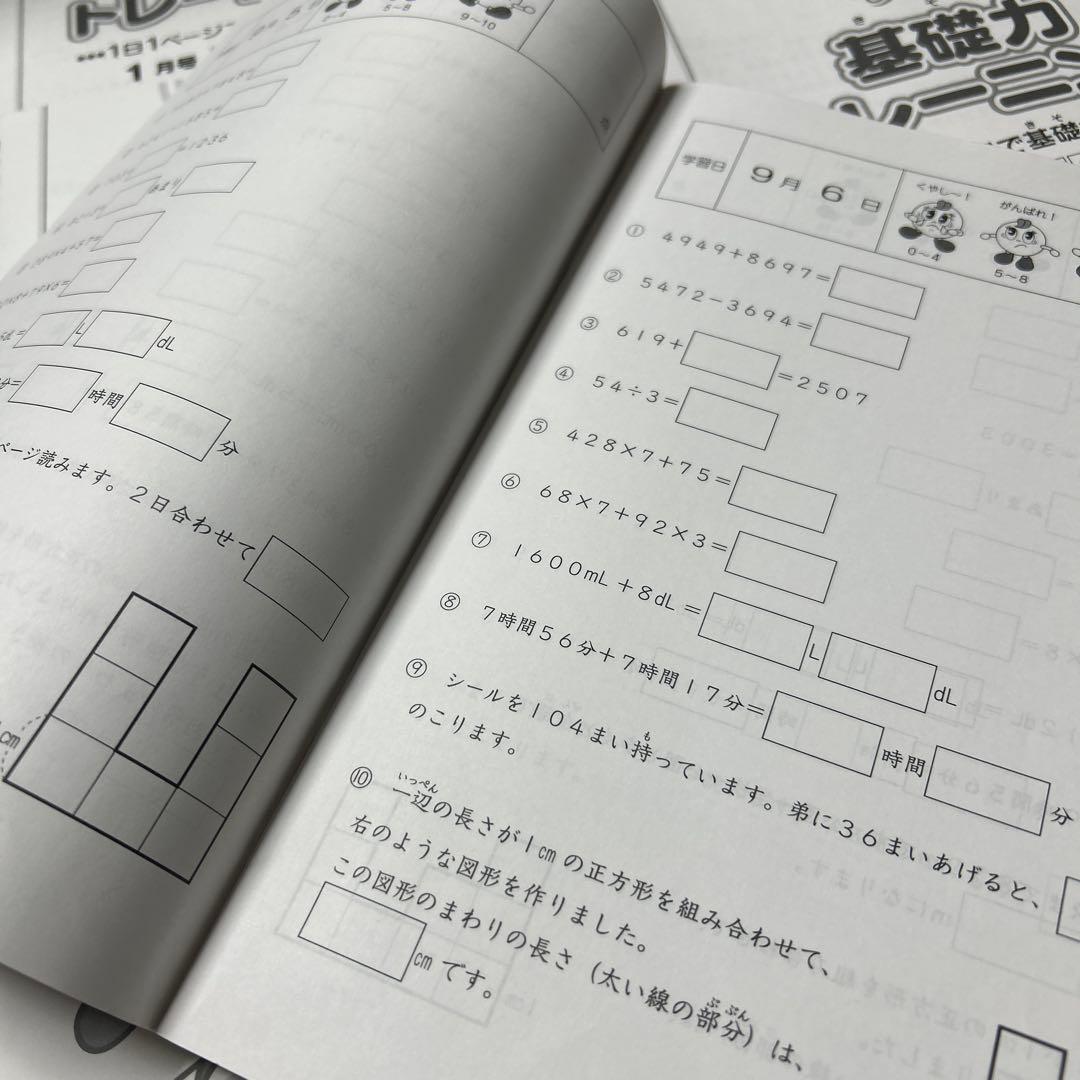 トレー
•••1日1ページ
1月号
基礎力
トレーニン
で基礎
5〜8
9〜10
1236
あまり
L
dL
分=
時間
分
ページ読みます。2日合わせて
cm
学習日
9月6日
くやし〜!
がんばれ!
0〜4
5〜8
① 4949+8697=
② 5472−3694=
③ 619+ =2507
④ 54÷3=
⑤ 428×7+75=
⑥ 68×7+92×3=
⑦ 1600mL+8dL= L dL
⑧ 7時間56分+7時間17分= 時間 分
⑨ シールを104まい持っています。弟に36まいあげると、
のこります。
⑩ 一辺の長さが1cmの正方形を組み合わせて、
右のような図形を作りました。
この図形のまわりの長さ(太い線の部分)は、
cmです。